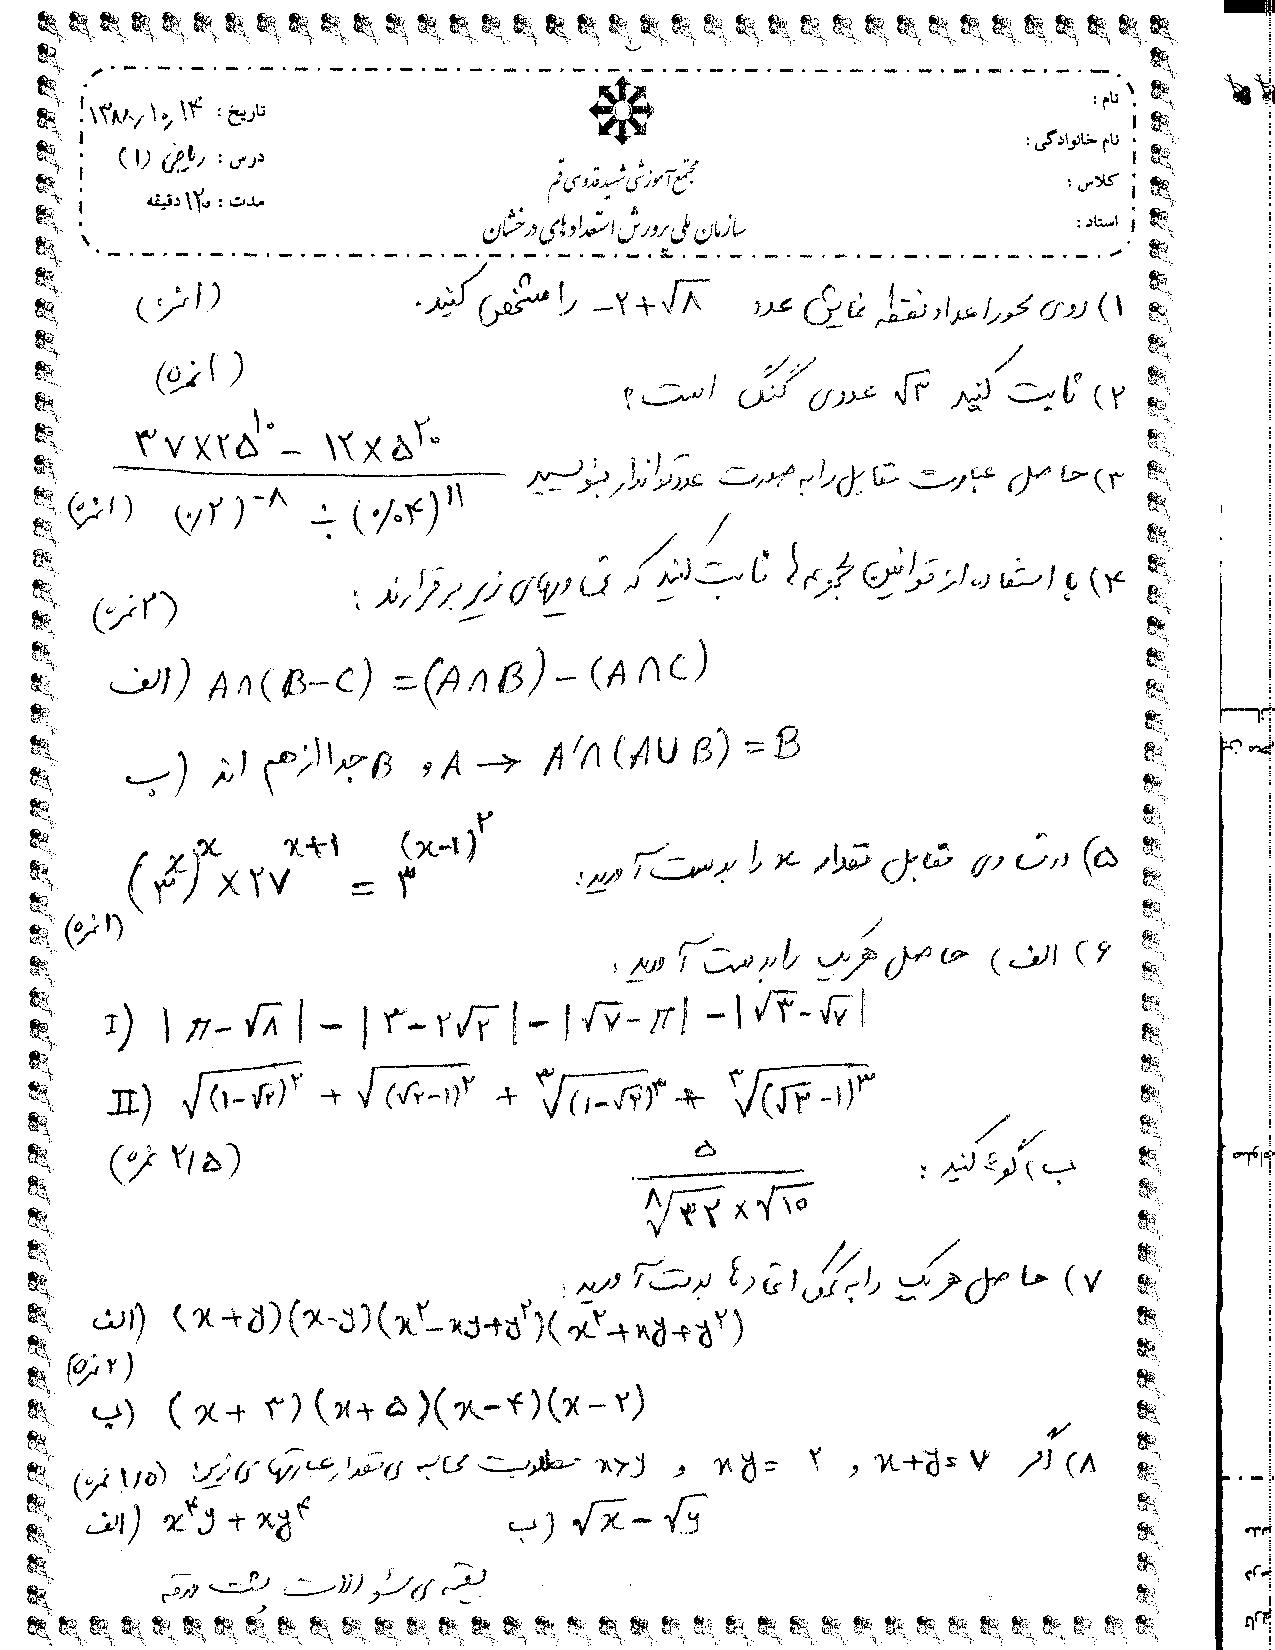 نام :
نام خانوادگی :
کلاس :
استاد :
مجتمع آموزشی شهید قدوسی قم
سازمان ملی پرورش استعدادهای درخشان
تاریخ : ۱۳۸۸,۱۰,۱۴
درس : ریاضی (۱)
مدت : ۱۲۰ دقیقه
۱) روی محور اعداد نقطه نمایش عدد ‎-۲+√۸‎ را مشخص کنید. (۱نمره)
۲) ثابت کنید √۳ عددی گنگ است؟ (۱نمره)
۳) حاصل عبارت مقابل را به صورت عدد توان‌دار بنویسید (۱نمره)
۳۷×۲۵^۱۰ − ۱۲×۵^۲۰
(۰/۲)^-۸ ÷ (۰/۰۴)^۱۱
۴) با استفاده از قوانین مجموعه‌ها ثابت کنید که تساویهای زیر برقرارند : (۲نمره)
الف) A∩(B−C) =(A∩B)−(A∩C)
ب) A و B جدا از هم اند → A′∩(A∪B)=B
۵) در تساوی مقابل مقدار x را بدست آورید: (۱نمره)
(۳^x)^x × ۲۷^x+۱ = ۳^(x-۱)^۲
۶) الف) حاصل هریک را بدست آورید:
I) |π-√۸| - |۳-۲√۲| - |√۷-π| - |√۳-√۷|
II) √(۱-√۲)^۲ + √(√۲-۱)^۲ + ∛(۱-√۳)^۳ + ∛(√۳-۱)^۳
ب) گویا کنید : ۵ / ⁸√۳۲×√۱۰ (۲/۵ نمره)
۷) حاصل هریک را به کمک اتحادها بدست آورید:
الف) (x+y)(x-y)(x^۲-xy+y^۲)(x^۲+xy+y^۲)
(۲نمره)
ب) (x+۳)(x+۵)(x-۴)(x-۲)
۸) اگر x+y=۷ , xy=۲ , x>y مطلوبست محاسبه ی مقدار عبارتهای زیر: (۱/۵ نمره)
الف) x^۴y+xy^۴ ب) √x-√y
بقیه ی سئوالات پشت ورقه